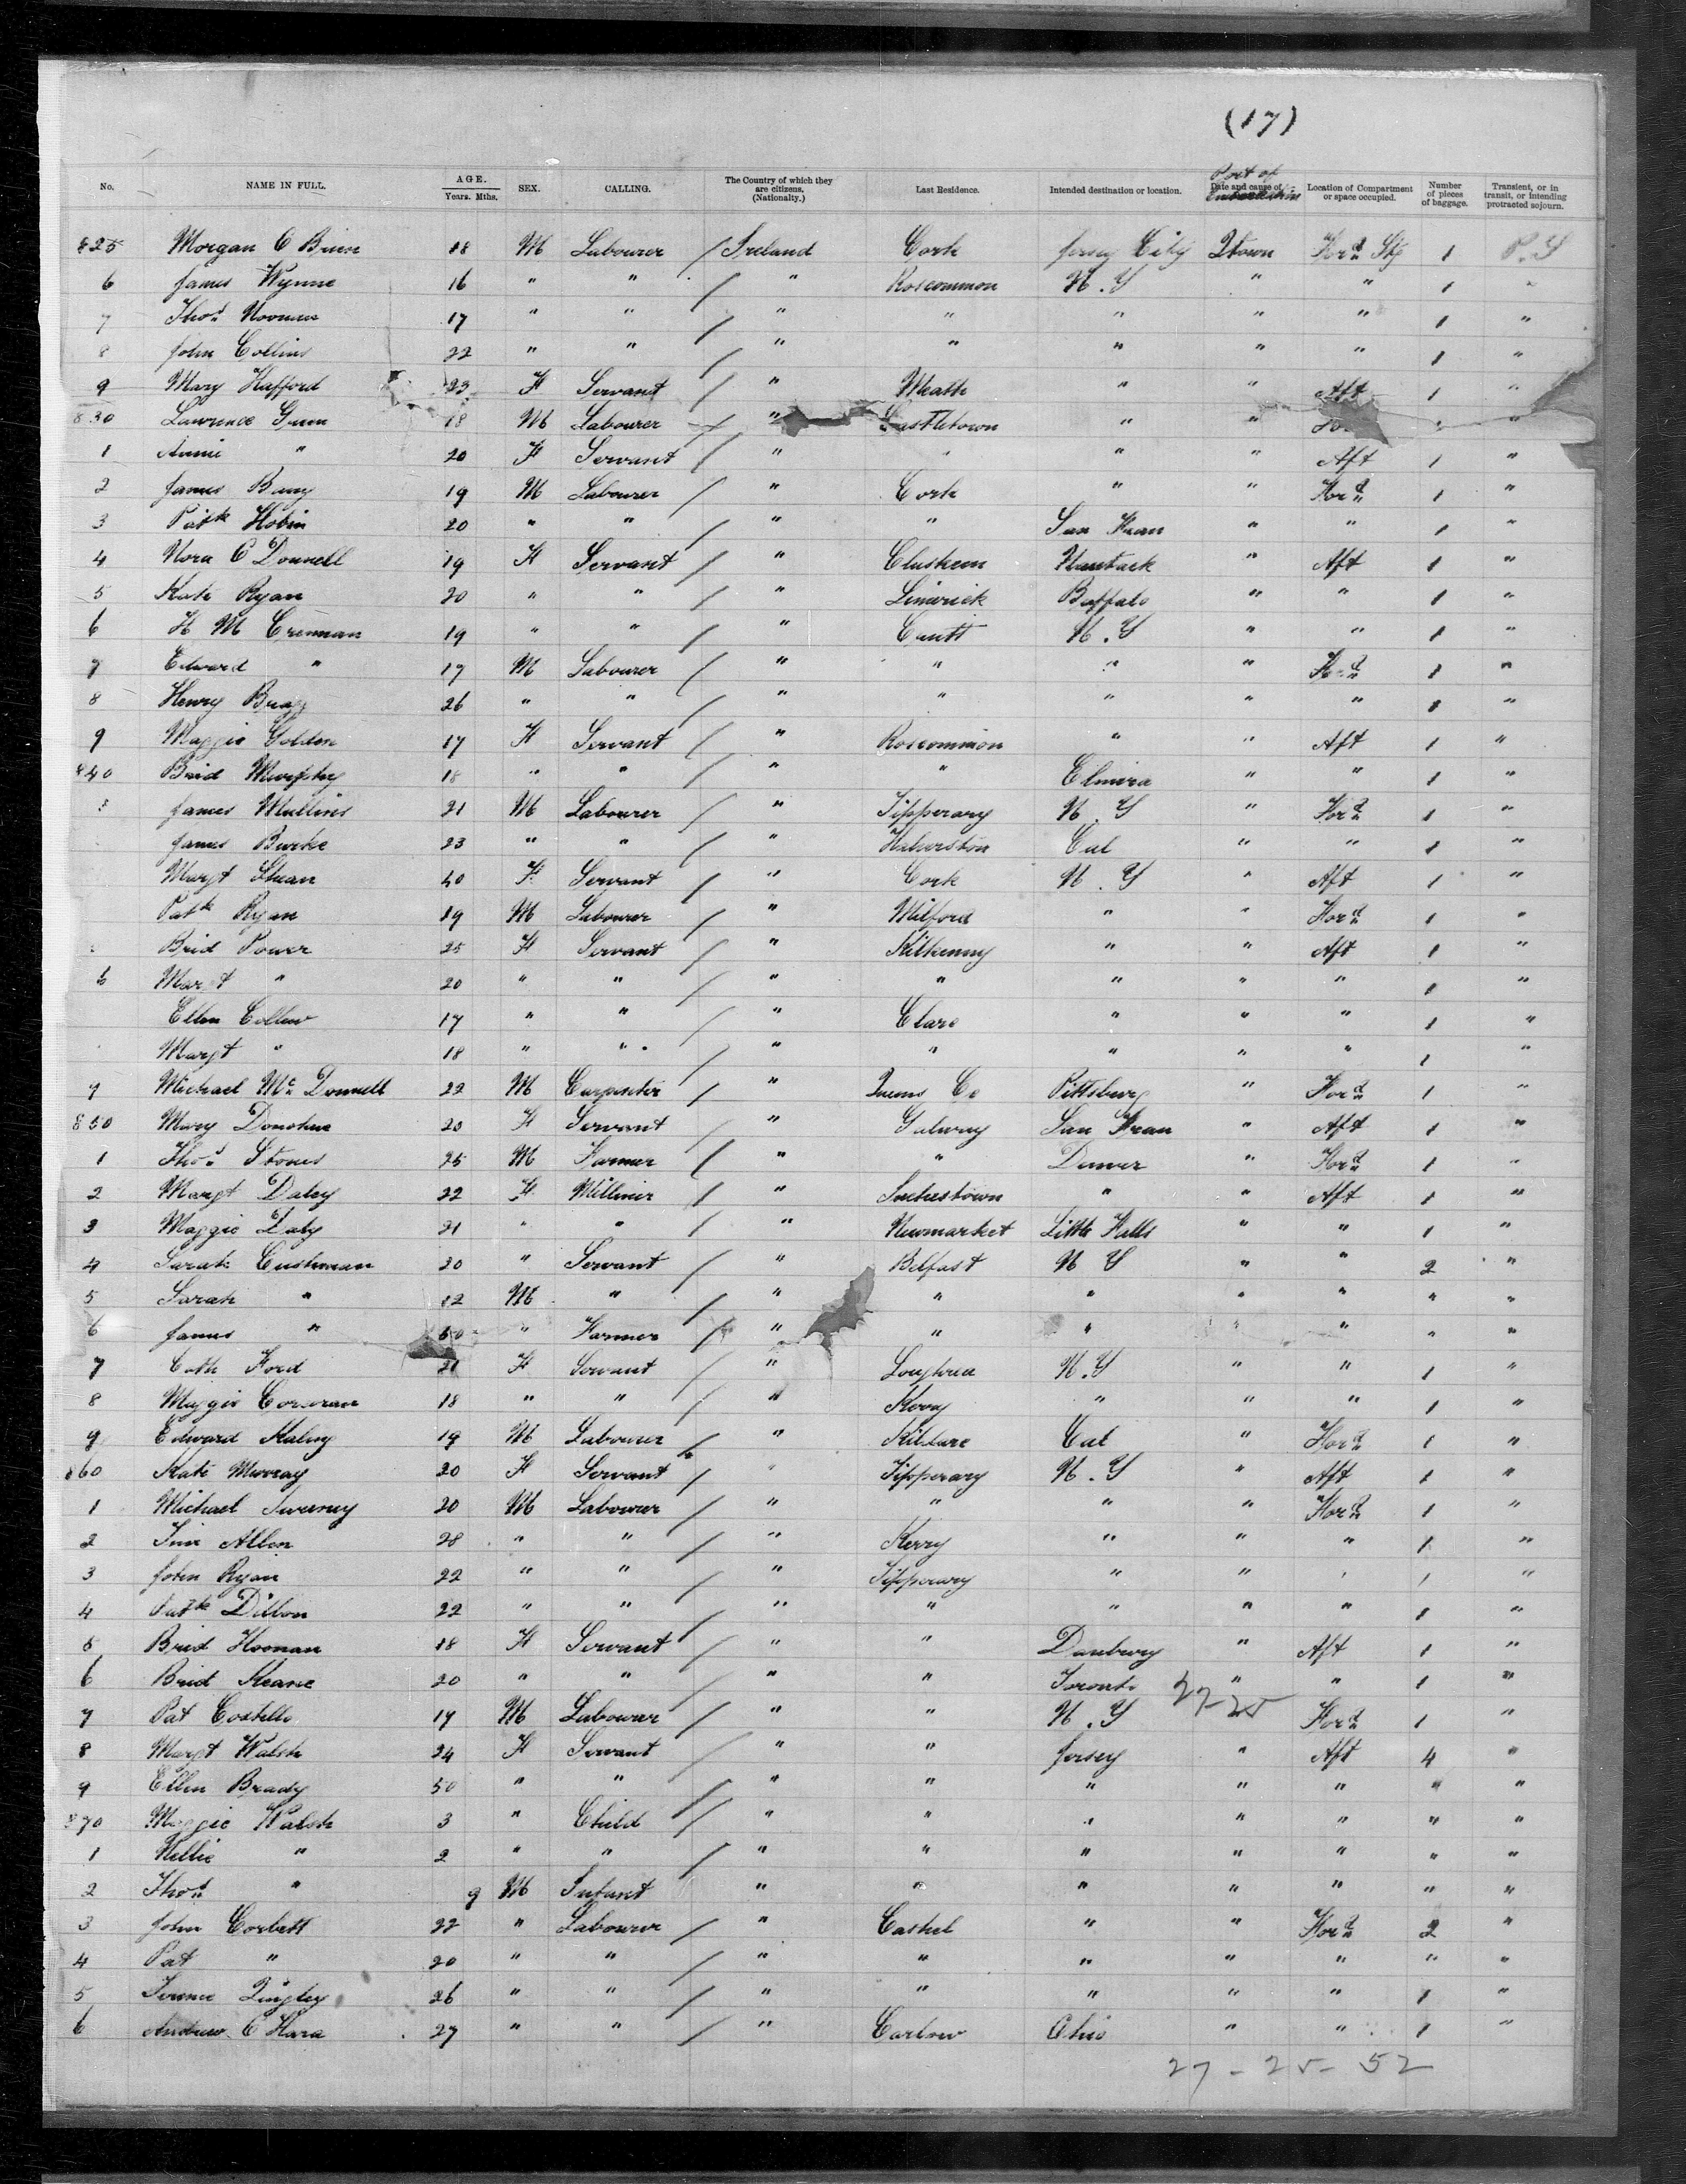 (17)
No. NAME IN FULL. AGE. Years. Mths. SEX. CALLING. The Country of which they are citizens. (Nationality.) Last Residence. Intended destination or location. Date and cause of Port of Embarkation Location of Compartment or space occupied. Number of pieces of baggage. Transient, or in transit, or intending protracted sojourn.
825 Morgan O Brien 18 M Labourer / Ireland Cork Jersey City Qtown For'd Stg 1 P.S
6 James Wynne 16 " " / " Roscommon N.Y " " 1 "
7 Thos Noonan 17 " " / " " " " " 1 "
8 John Collins 22 " " / " " " " " 1 "
9 Mary Hafford 23 F Servant / " Meath " " Aft 1 "
830 Lawrence 18 M Labourer / " Castletown " " "
1 Annie " 20 F Servant / " " " " Aft 1 "
2 James Barry 19 M Labourer / " Cork " " For'd 1 "
3 Patk Hobin 20 " " / " " San Fran " " 1 "
4 Nora O Donnell 19 F Servant / " " Aft 1 "
5 Kate Ryan 20 " " / " Limerick Buffalo " " 1 "
6 H M Crennan 19 " " / " N.Y " " 1 "
7 Edward " 17 M Labourer / " " " " For'd 1 "
8 Henry Bragg 26 " " / " " " " " 1 "
9 Maggie Golden 17 F Servant / " Roscommon " " Aft 1 "
840 Brid Murphy 18 " " / " " Elmira " " 1 "
James Mullins 21 M Labourer / " Tipperary N.Y " For'd 1 "
James Burke 23 " " / " Cal " " 1 "
Margt 40 F Servant / " Cork N.Y " Aft 1 "
Patk Ryan 19 M Labourer / " Milford " " For'd 1 "
Brid Power 25 F Servant / " Kilkenny " " Aft 1 "
6 Margt " 20 " " / " " " " " 1 "
Ellen 17 " " / " Clare " " " 1 "
Margt " 18 " " / " " " " " 1 "
9 Michael Mc Donnell 22 M Carpenter / " Queens Co Pittsburg " For'd 1 "
850 Mary Donohue 20 F Servant / " Galway San Fran " Aft 1 "
1 Thos Stones 25 M Farmer / " " Denver " For'd 1 "
2 Margt Daley 22 F Milliner / " " " Aft 1 "
3 Maggie Daly 21 " " / " Newmarket Little Falls " " 1 "
4 Sarah Cushman 20 " Servant / " Belfast N Y " " 2 "
5 Sarah " 12 M " / " " " " " " "
6 James " 50 " Farmer / " " " " " " "
7 Cath Ford 21 F Servant / " Loughrea N.Y " " 1 "
8 Maggie Corcoran 18 " " / " " " " 1 "
9 Edward 19 M Labourer / " Kildare Cal " For'd 1 "
860 Kate Murray 20 F Servant / " Tipperary N.Y " Aft 1 "
1 Michael Sweeney 20 M Labourer / " " " " For'd 1 "
2 Allen 28 " " / " Kerry " " " 1 "
3 John Ryan 22 " " / " Tipperary " " " 1 "
4 Patk Dillon 22 " " / " " " " " 1 "
5 Brid Hoonan 18 F Servant / " " Danbury " Aft 1 "
6 Brid Keane 20 " " / " " Toronto " " 1 "
27-25
7 Pat Costello 17 M Labourer / " " N.Y For'd 1 "
8 Margt Walsh 24 F Servant / " " Jersey " Aft 4 "
9 Ellen Brady 50 " " / " " " " " " "
870 Maggie Walsh 3 " Child / " " " " " " "
1 Nellie " 2 " " / " " " " " " "
2 Thos " 9 M Infant " " " " " " "
3 John Corbett 22 " Labourer / " Cashel " " For'd 2 "
4 Pat " 20 " " / " " " " " " "
5 Terence 26 " " / " " " " " 1 "
6 Andrew O Hara 27 " " / " Carlow Ohio " " 1 "
27-25-52